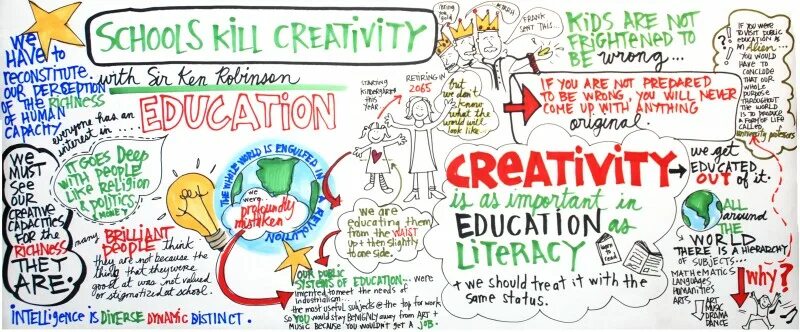 SCHOOLS KILL CREATIVITY
with Sir Ken Robinson
We
HAVE to
reconstitute
OUR PERCEPTION
OF THE RICHNESS
OF HUMAN
CAPACITY.
everyone has an
interest in....
EDUCATION
IT GOES Deep
WITH PEOPLE
Like Religion
& POLITICS
& MONEY
WE
MUST
see
OUR
CREATIVE
CAPACITIES
FOR the
RICHNESS
THEY
ARE:
many BRILLIANT
PEOPLE think
they are not because the
thing that they were
good at was not valued
or stigmatized at school.
INTelligence is DIVERSE DYNAMIC DISTINCT.
THE WHOLE WORLD IS ENGULFED IN A REVOLUTION
we
were
profoundly
mistaken
STARTING
KINDERGARTEN
THIS
YEAR...
RETIRING IN
2065
but we
don't
know
what the
world will
look like...
we are
educating them
from the WAIST
up & then slightly
to one side.
OUR PUBLIC
SYSTEMS OF EDUCATION... were
invented to meet the needs of
industrialism...
the most useful subjects @ the top for work
so YOU would stay BENIGNLY away from ART &
MUSIC BECAUSE YOU WOULDN'T GET A JOB.
I BRING
YOU
GOLD
MYRRH
FRANK
SENT THIS...
KIDS ARE NOT
FRIGHTENED TO
BE wrong...
IF YOU ARE NOT PREPARED
TO BE WRONG, YOU WILL NEVER
COME UP WITH ANYTHING
original.
CREATIVITY
is as important in
EDUCATION as
LITERACY
& we should treat it with the
same status.
learn
to
read
IF YOU WERE
TO VISIT PUBLIC
EDUCATION AS
AN Alien...
YOU WOULD
HAVE TO
CONCLUDE
THAT OUR
WHOLE
PURPOSE
THROUGHOUT
THE WORLD
IS TO PRODUCE
A FORM OF LIFE
CALLED,
university professors
?!
we get
EDUCATED
OUT of it.
ALL
around
THE
WORLD
THERE IS A HIERARCHY
OF SUBJECTS...
MATHEMATICS
LANGUAGES
HUMANITIES
ARTS
ART
MUSIC
DRAMA
DANCE
why?